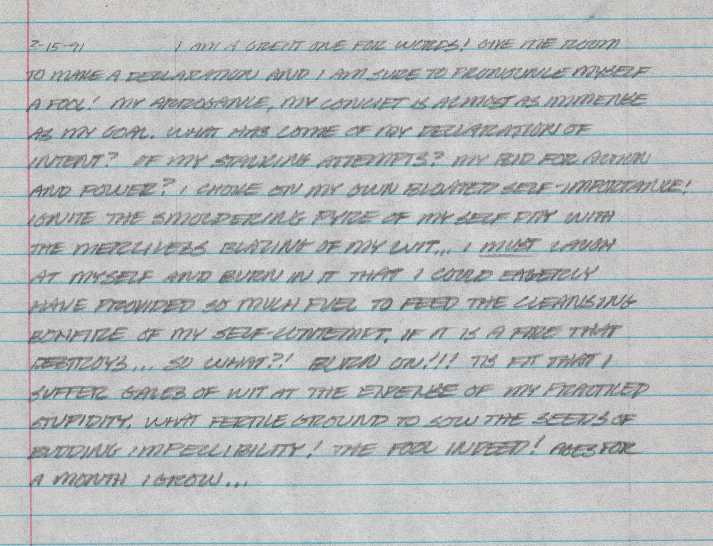 2-15-91 I AM A GREAT ONE FOR WORDS! GIVE ME ROOM
TO MAKE A DECLARATION AND I AM SURE TO PRONOUNCE MYSELF
A FOOL! MY ARROGANCE, MY CONCIET IS ALMOST AS IMMENSE
AS MY GOAL. WHAT HAS COME OF MY DECLARATION OF
INTENT? OF MY STALKING ATTEMPTS? MY BID FOR ACTION
AND POWER? I CHOKE ON MY OWN BLOATED SELF-IMPORTANCE!
IGNITE THE SMOLDERING PYRE OF MY SELF PITY WITH
THE MERCILESS BLAZING OF MY WIT... I MUST LAUGH
AT MYSELF AND BURN IN IT THAT I COULD EAGERLY
HAVE PROVIDED SO MUCH FUEL TO FEED THE CLEANSING
BONFIRE OF MY SELF-CONTEMPT. IF IT IS A FIRE THAT
DESTROYS... SO WHAT?! BURN ON!!! TIS FIT THAT I
SUFFER GALES OF WIT AT THE EXPENSE OF MY PRACTICED
STUPIDITY. WHAT FERTILE GROUND TO SOW THE SEEDS OF
BUDDING IMPECCIBILITY! THE FOOL INDEED! AGES FOR
A MONTH I GROW...